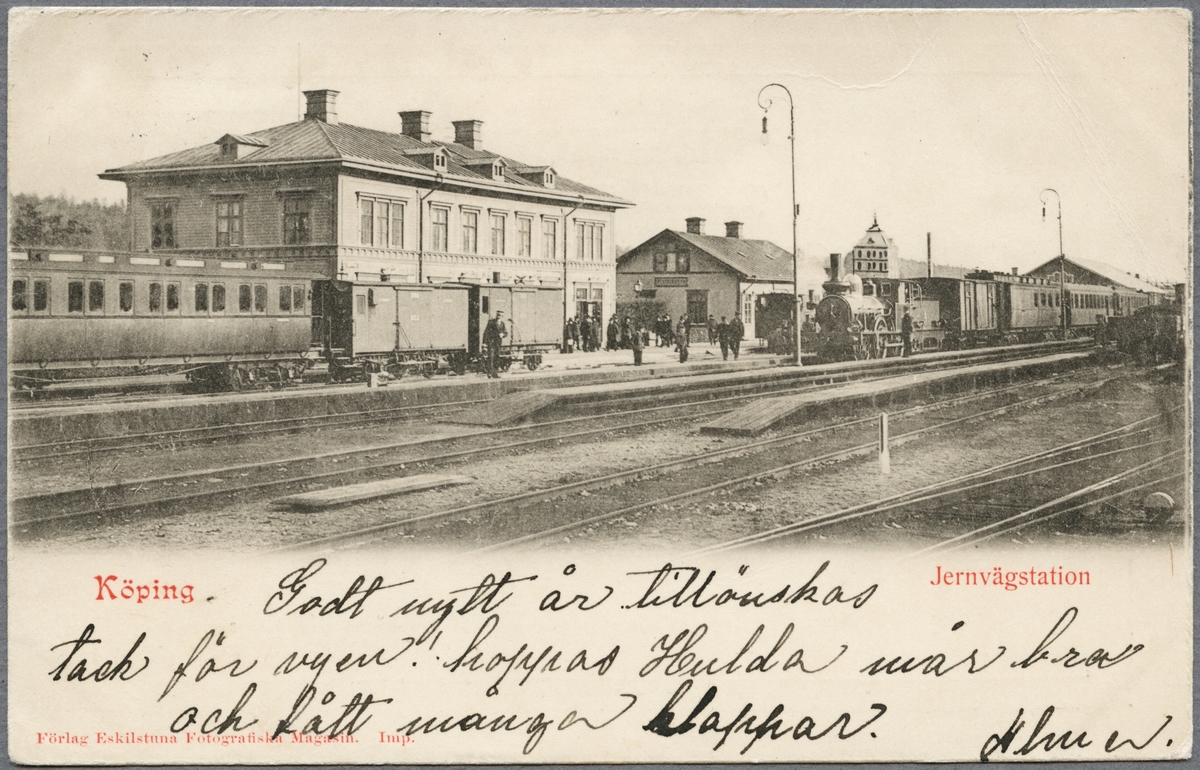 Köping
Jernvägstation
Godt nytt år tillönskas
tack för vyen! hoppas Hulda mår bra
och fått många klappar.
Förlag Eskilstuna Fotografiska Magasin. Imp.